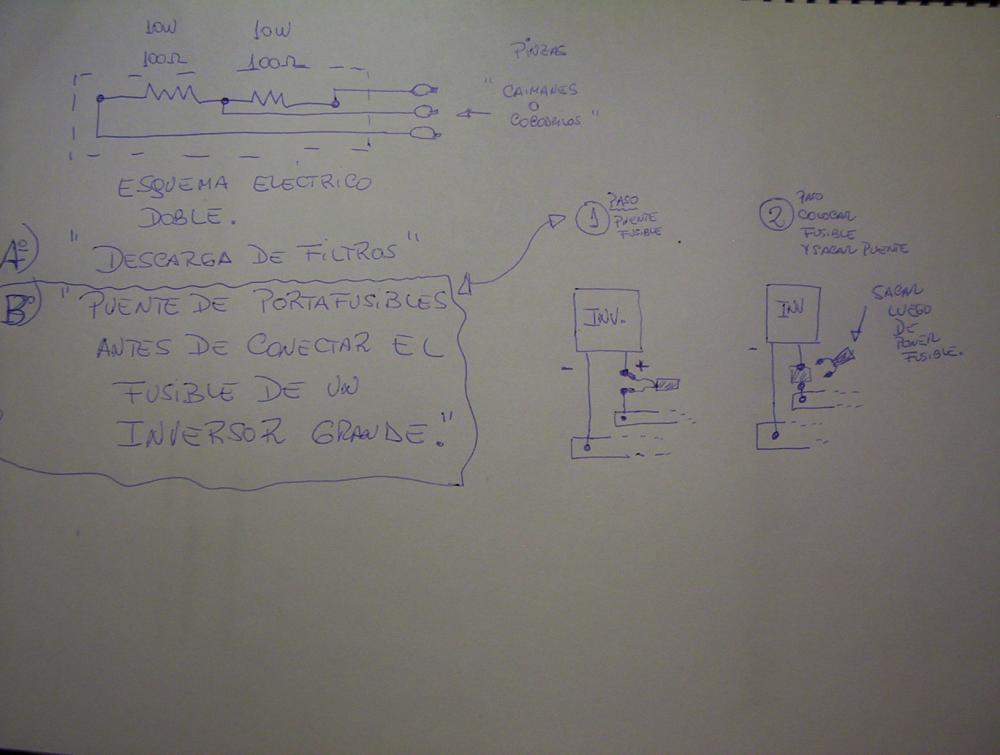 10W 10W
100Ω 100Ω
PINZAS
" CAIMANES
O
COCODRILOS "
ESQUEMA ELÉCTRICO
DOBLE.
A)
" DESCARGA DE FILTROS "
B) " PUENTE DE PORTAFUSIBLES
ANTES DE CONECTAR EL
FUSIBLE DE UN
INVERSOR GRANDE."
1 PASO
PUENTE
FUSIBLE
INV.
- +
2 PASO
COLOCAR
FUSIBLE
Y SACAR PUENTE
INV
-
SACAR
LUEGO
DE
PONER
FUSIBLE.